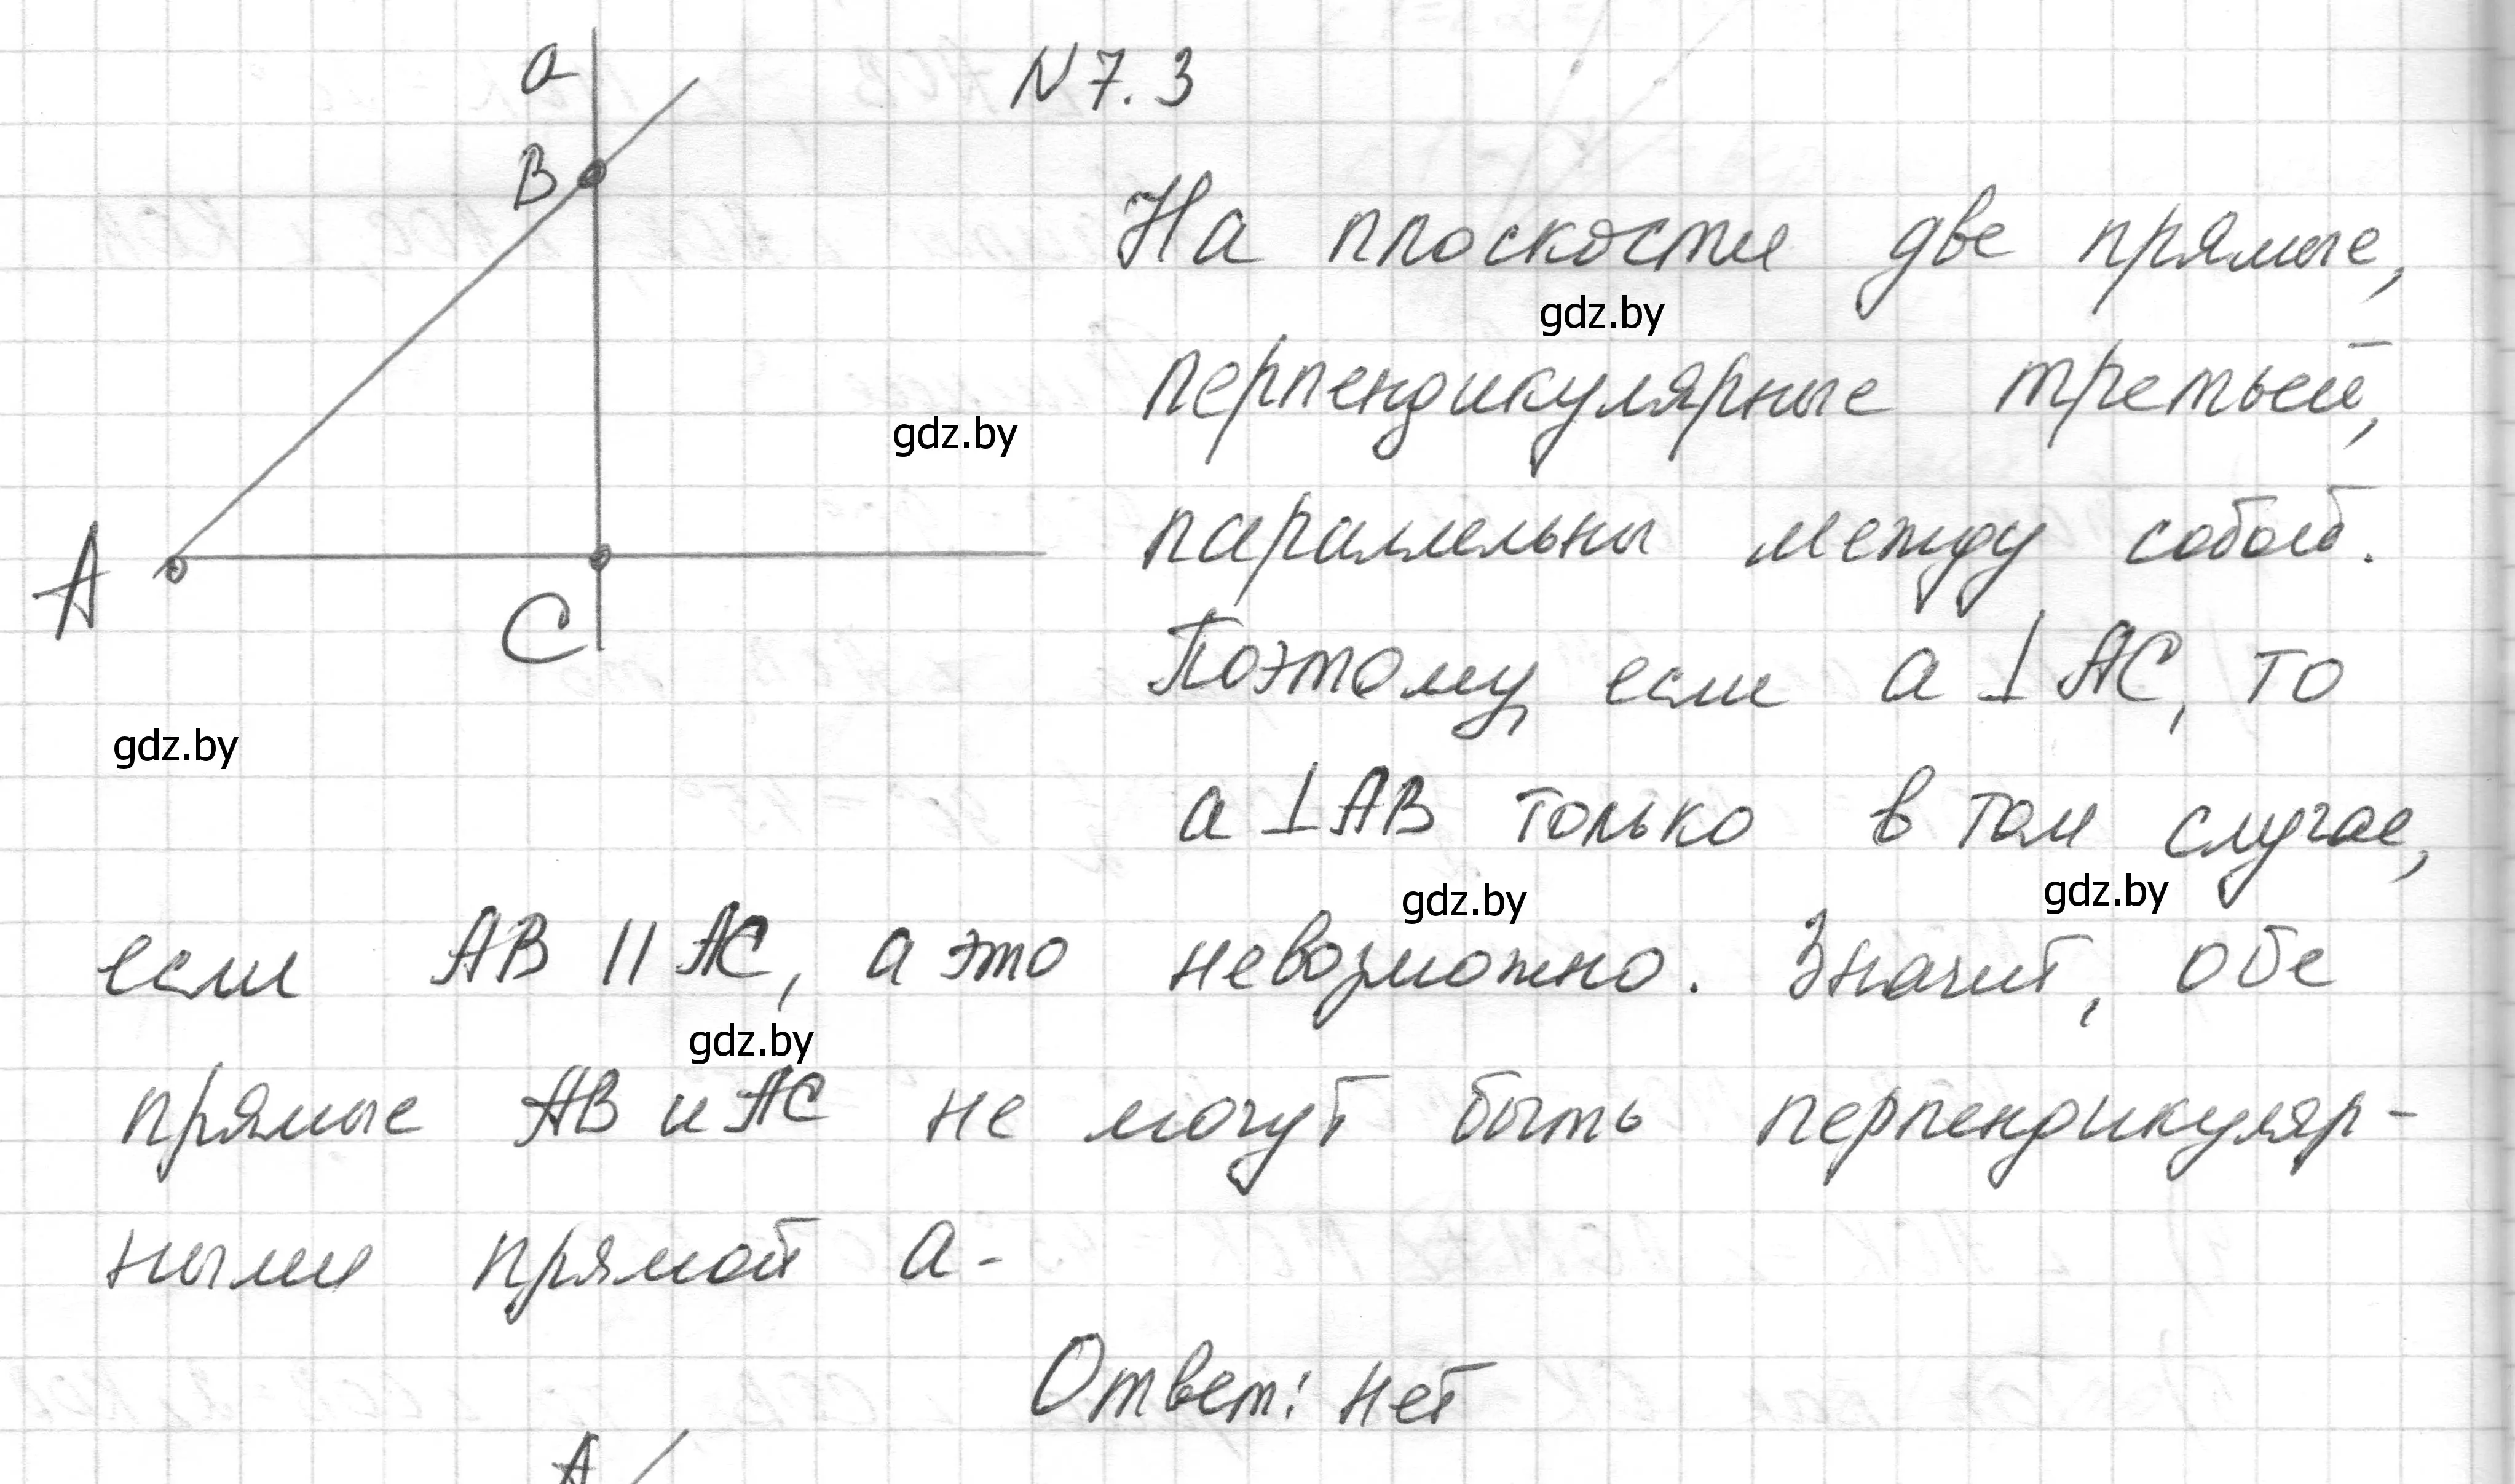 N 7.3
a
B
На плоскости две прямые,
gdz.by
перпендикулярные третьей,
gdz.by
параллельны между собой.
A
C
Поэтому, если a ⊥ AC, то
gdz.by
a ⊥ AB только в том случае,
gdz.by
gdz.by
если AB || AC, а это невозможно. Значит, обе
gdz.by
прямые AB и AC не могут быть перпендикуляр-
ными прямой a.
Ответ: нет
A